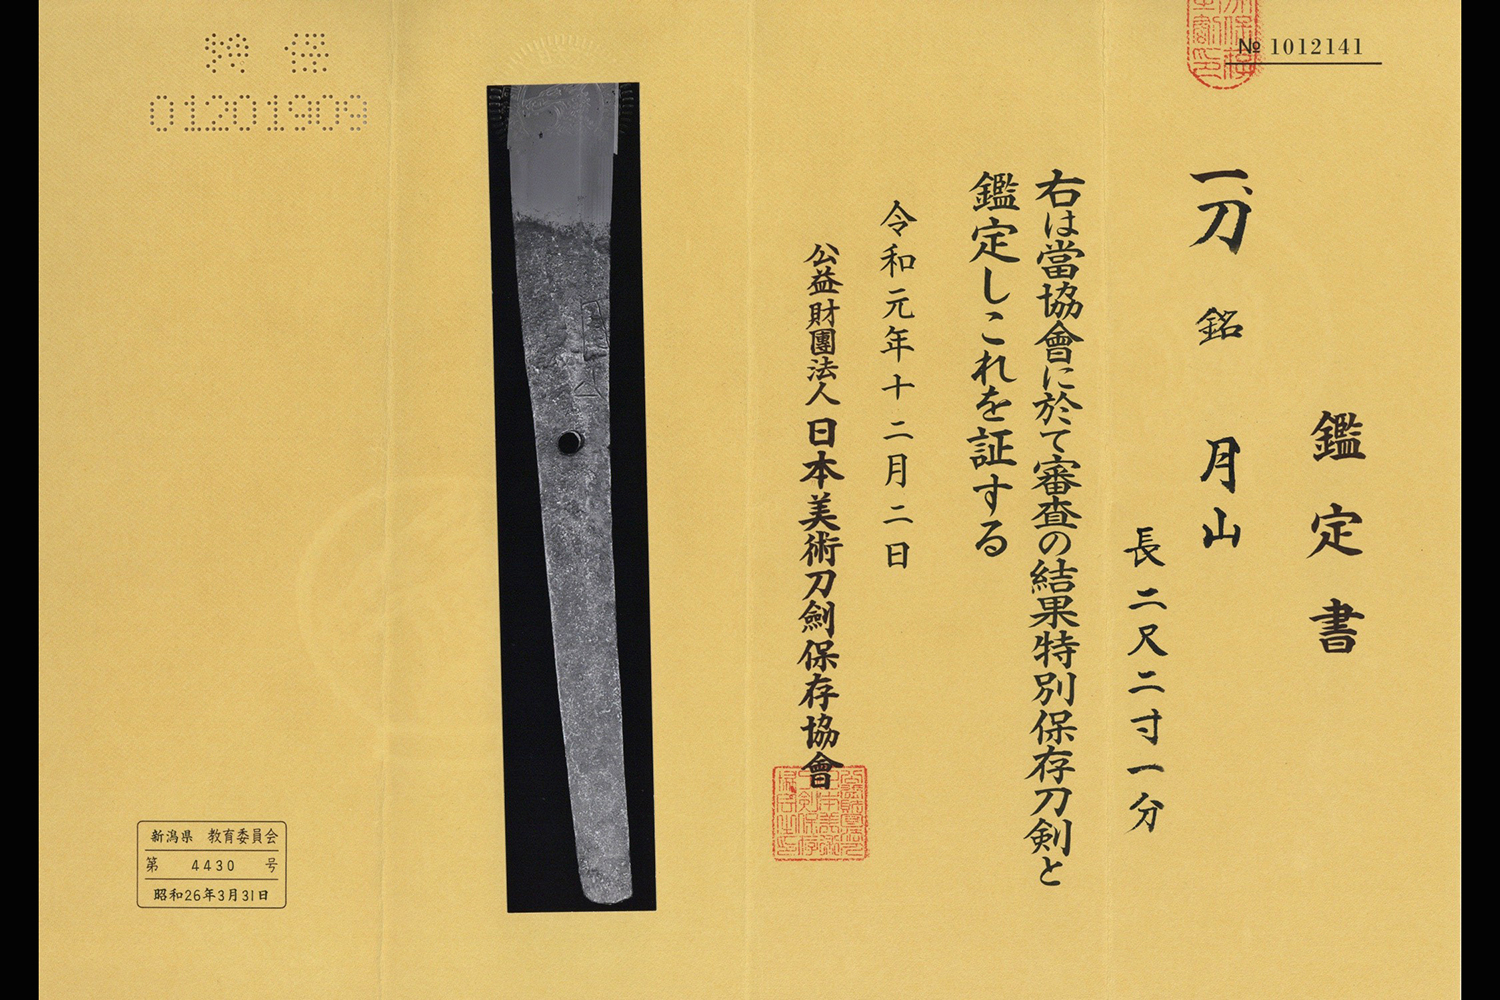 № 1012141
鑑定書
一、刀 銘 月山
長二尺二寸一分
右は當協會に於て審査の結果特別保存刀剣と
鑑定しこれを証する
令和元年十二月二日
公益財團法人 日本美術刀劍保存協會
特保
01201909
新潟県 教育委員会
第 4430 号
昭和26年3月31日